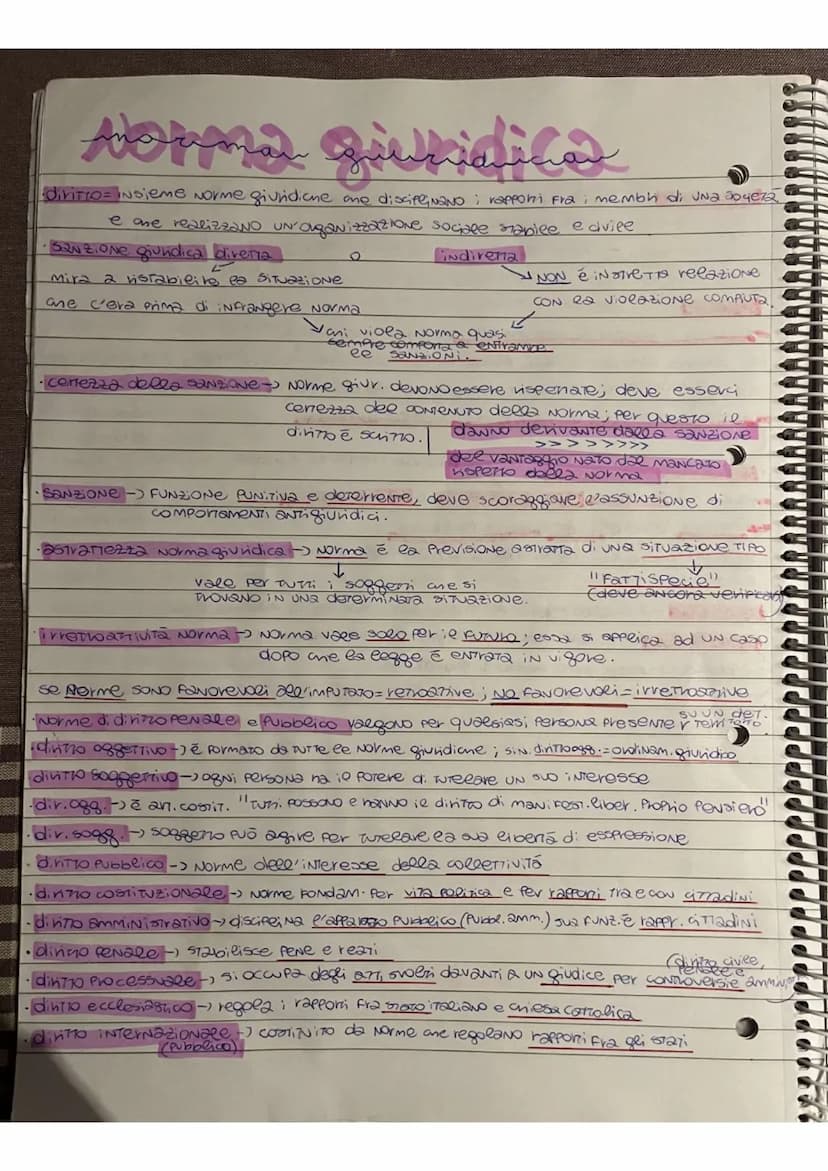 norma giuridica
·diritto= insieme norme giuridiche che disciplinano i rapporti fra i membri di una società
e che realizzano un'organizzazione sociale stabile e civile
·sanzione giuridica diretta o indiretta
mira a ristabilire la situazione → NON è in stretta relazione
che c'era prima di infrangere norma con la violazione compiuta.
chi viola norma quasi
sempre comporta a entrambe
le sanzioni.
·certezza della sanzione → norme giur. devono essere rispettate; deve esserci
certezza del contenuto della norma; per questo il
diritto è scritto. | danno derivante dalla sanzione
>>>>>>>>
del vantaggio nato dal mancato
rispetto della norma
·sanzione → funzione punitiva e deterrente, deve scoraggiare l'assunzione di
comportamenti antigiuridici.
·astrattezza norma giuridica → norma è la previsione astratta di una situazione tipo
vale per tutti i soggetti che si "Fattispecie"
trovano in una determinata situazione. (deve ancora verificarsi)
·irretroattività norma → norma vale solo per il futuro; essa si applica ad un caso
dopo che la legge è entrata in vigore.
se norme sono favorevoli all'imputato = retroattive; no favorevoli = irretroattive
·norme di diritto penale e pubblico valgono per qualsiasi persona presente su un det. territorio
·diritto oggettivo → è formato da tutte le norme giuridiche; sin. diritto ogg. = ordinam. giuridico
diritto soggettivo → ogni persona ha il potere di tutelare un suo interesse
·dir. ogg. → è art. costit. "tutti possono e hanno il diritto di manifest. liber. proprio pensiero"
·dir. sogg. → soggetto può agire per tutelare la sua libertà di espressione
·diritto pubblico → norme dell'interesse della collettività
·diritto costituzionale → norme fondam. per vita politica e per rapporti tra e con cittadini
·diritto amministrativo → disciplina l'apparato pubblico (pubbl. amm.) sua funz. e rappr. cittadini
·diritto penale → stabilisce pene e reati
·diritto processuale → si occupa degli atti svolti davanti a un giudice per controversie (diritto civile, penale e amminist.)
·diritto ecclesiastico → regola i rapporti fra stato italiano e chiesa cattolica
·diritto internazionale → costituito da norme che regolano rapporti fra gli stati
(pubblico)